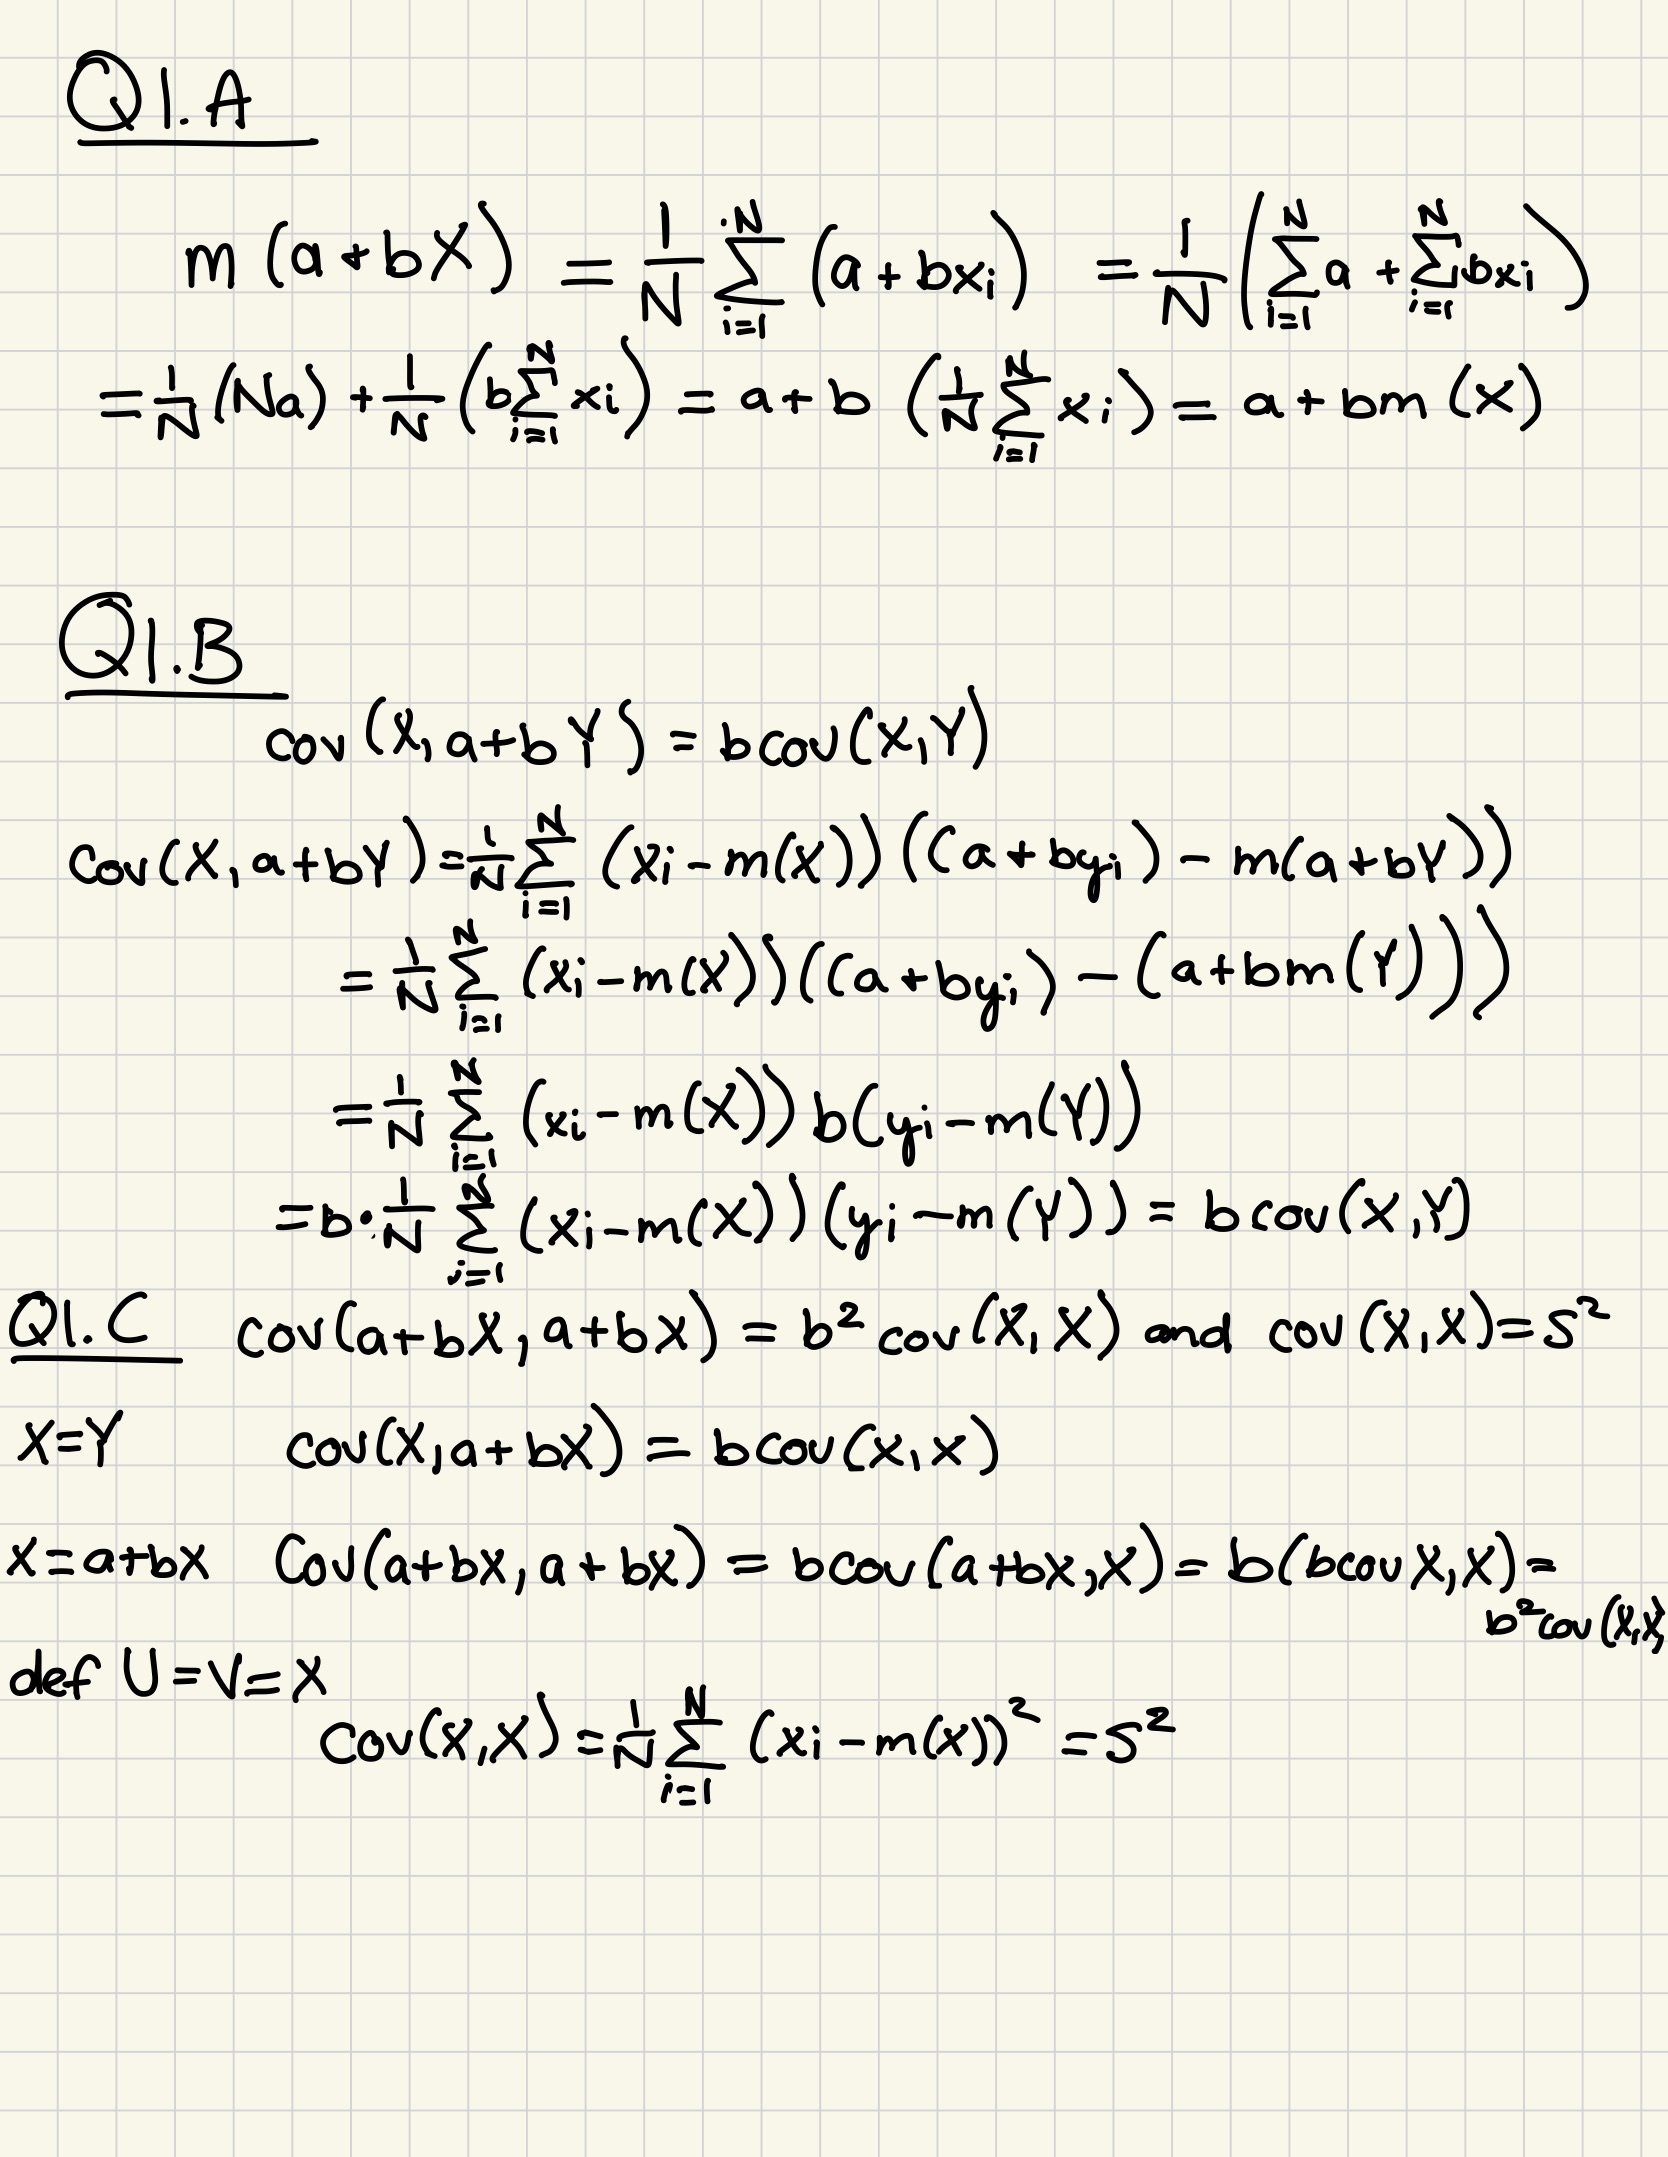 Q1.A
m(a+bX) = 1/N ∑_{i=1}^{N} (a+bx_i) = 1/N (∑_{i=1}^{N} a + ∑_{i=1}^{N} bx_i)
= 1/N (Na) + 1/N (b∑_{i=1}^{N} x_i) = a+b (1/N ∑_{i=1}^{N} x_i) = a+bm(X)
Q1.B
cov(X, a+bY) = bcov(X,Y)
cov(X, a+bY) = 1/N ∑_{i=1}^{N} (x_i-m(X))((a+by_i) - m(a+bY))
= 1/N ∑_{i=1}^{N} (x_i-m(X))((a+by_i) - (a+bm(Y)))
= 1/N ∑_{i=1}^{N} (x_i-m(X)) b(y_i-m(Y))
= b·1/N ∑_{i=1}^{N} (x_i-m(X))(y_i-m(Y)) = bcov(X,Y)
Q1.C cov(a+bX, a+bX) = b² cov(X,X) and cov(X,X)=s²
X=Y cov(X,a+bX) = bcov(X,X)
X=a+bX Cov(a+bX, a+bX) = bcov(a+bX,X) = b(bcovX,X) =
b²cov(X,X)
def U=V=X
Cov(X,X) = 1/N ∑_{i=1}^{N} (x_i-m(X))² = s²